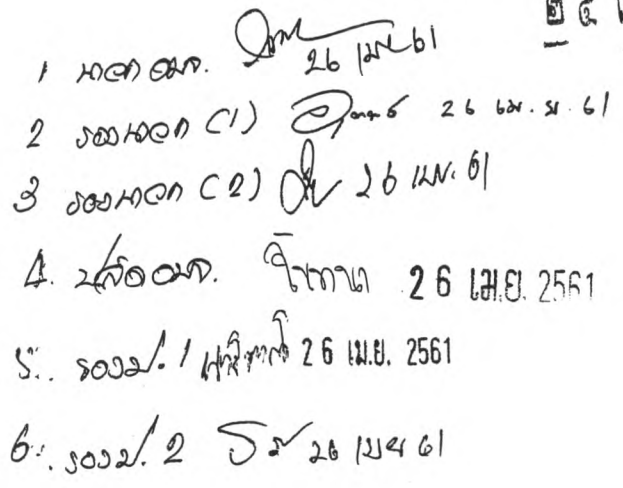 ๒๕
1 นายก อบจ. 26 เมย 61
2 รองนายก (1) 26 เม.ย. 61
3 รองนายก (2) 26 เมย. 61
4. ปลัด อบจ. 26 เม.ย. 2561
5. รองป. 1 26 เม.ย. 2561
6. รองป. 2 26 เมย 61